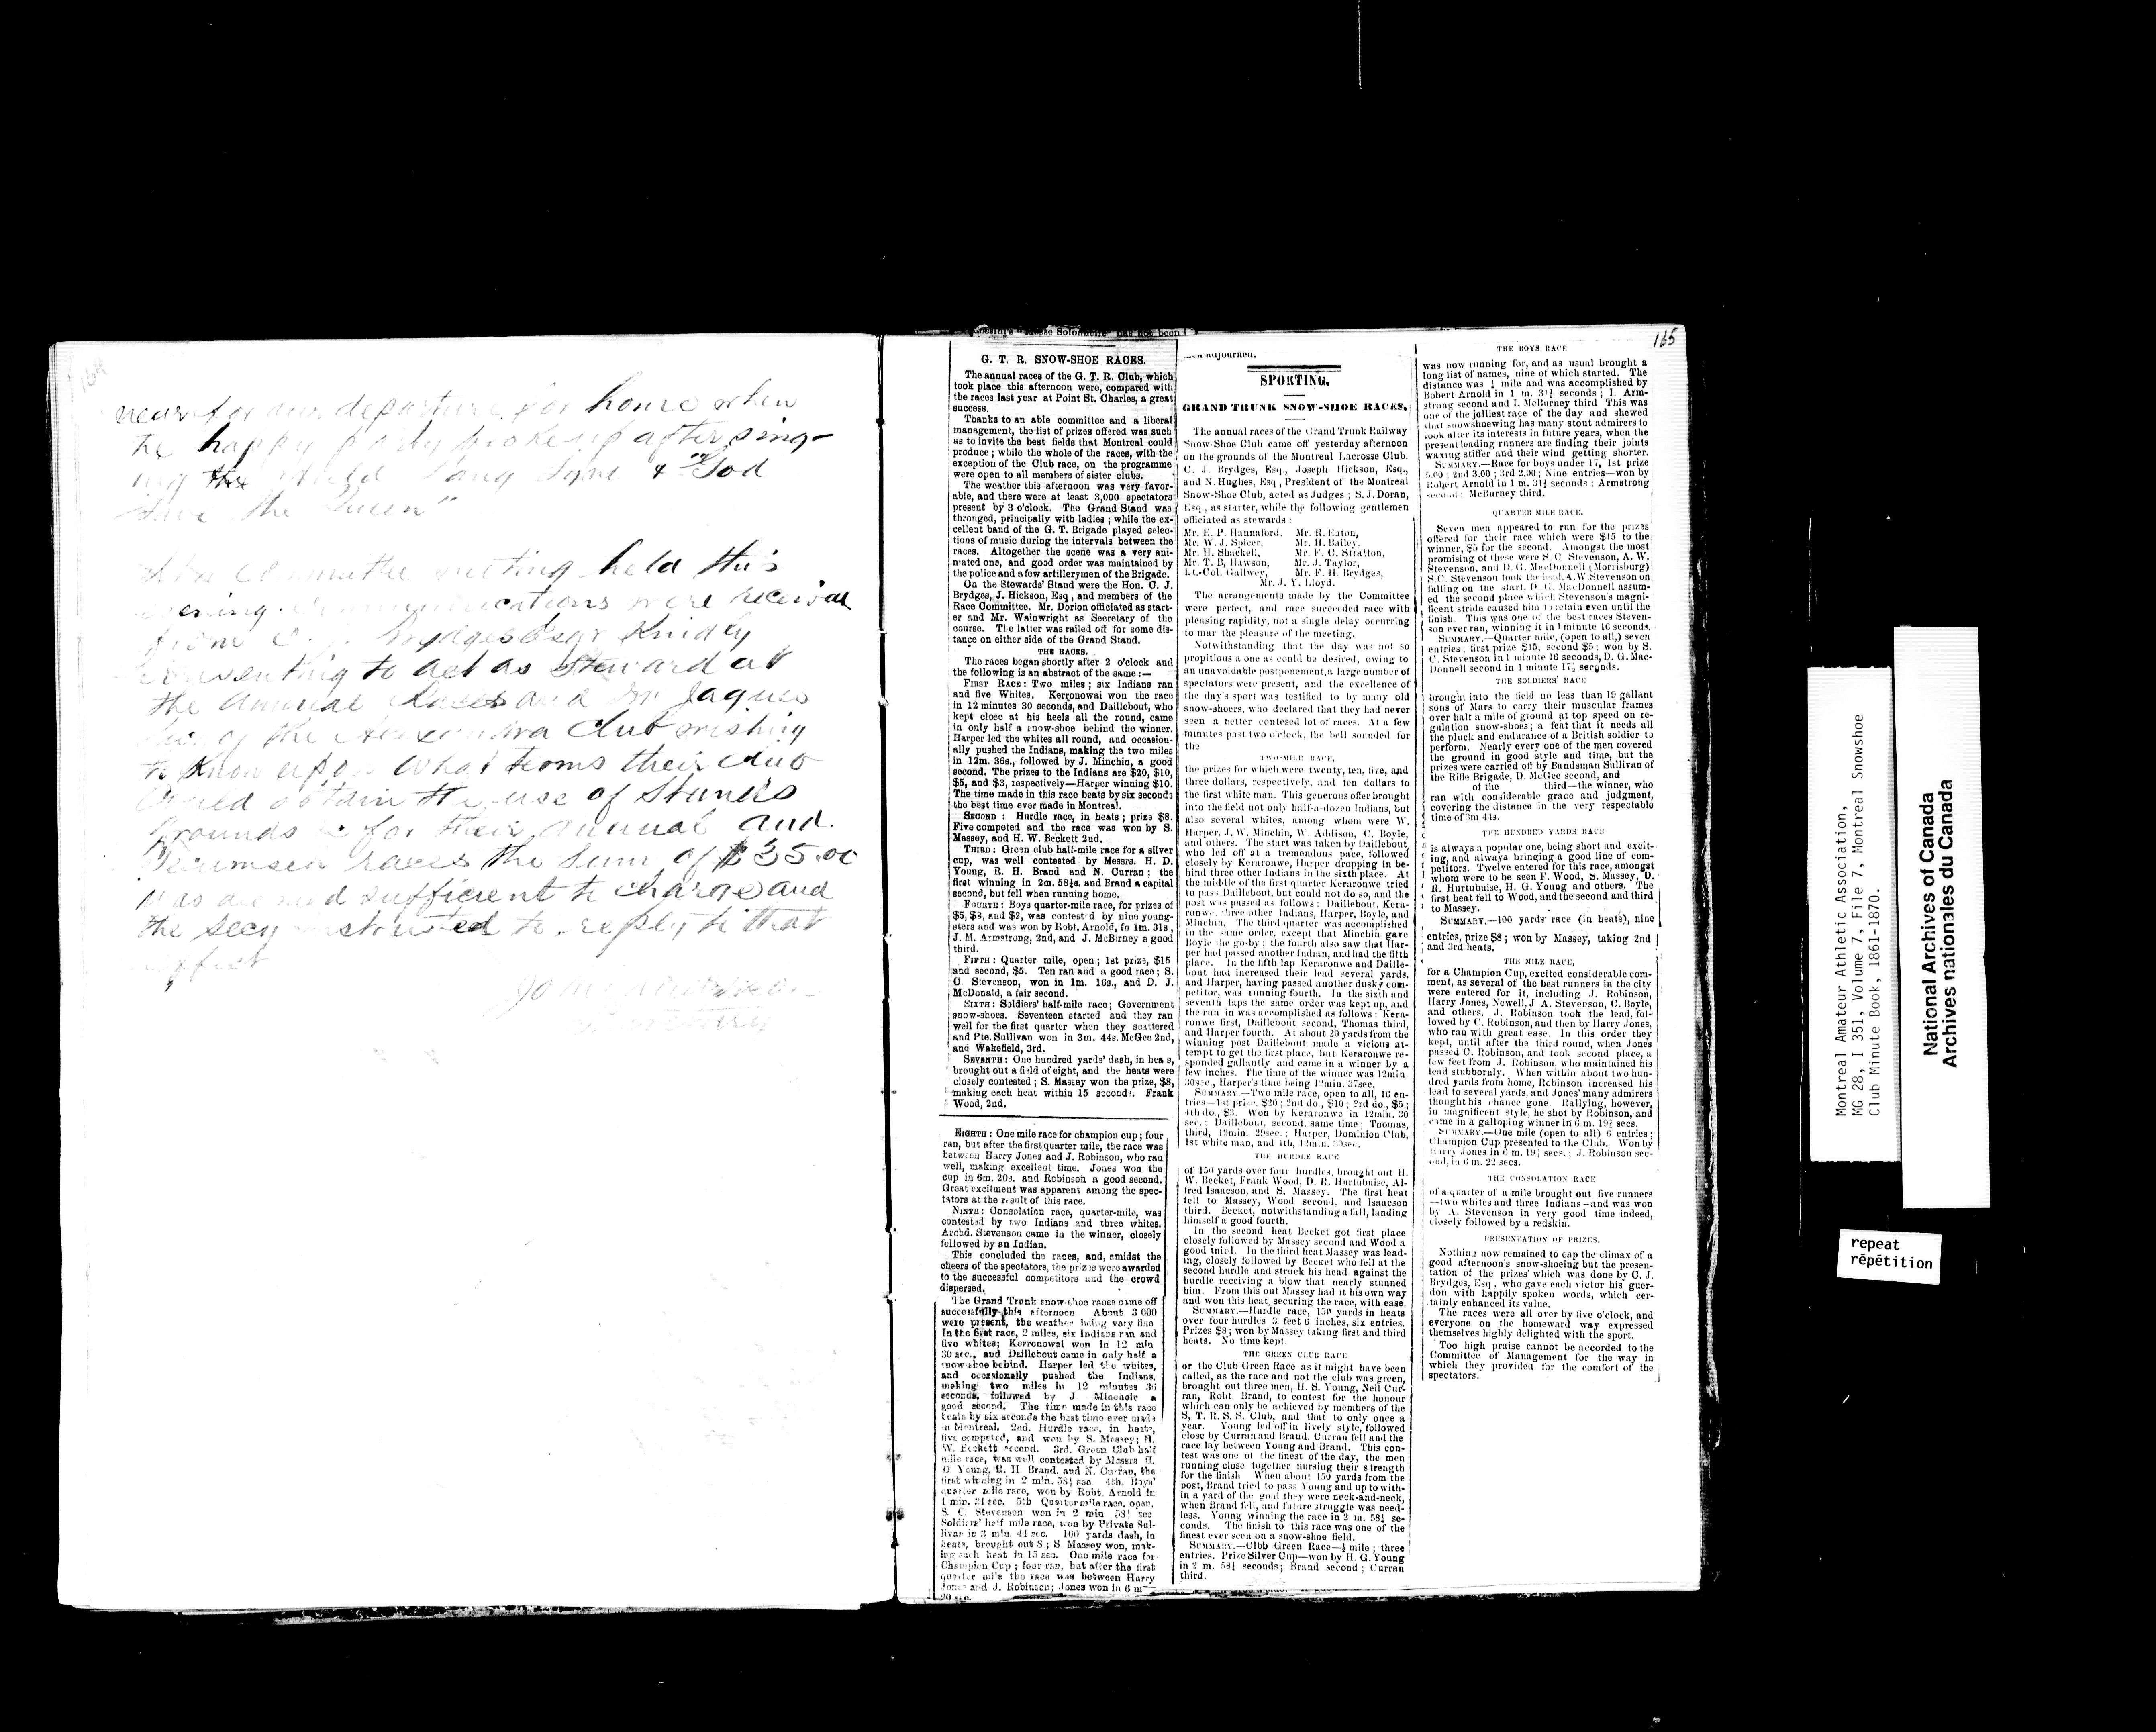 164
near for our departure for home when
the happy party broke up after sing-
ing the Auld Lang Syne & "God
Save the Queen"
At a Committee meeting held this
evening communications were received
from C. J. Brydges Esqr Kindly
consenting to act as Steward at
the annual Races and Mr Jaques
of the Alexandra Club wishing
to know upon what terms their club
could obtain the use of Stands
Grounds &c for their annual and
Tecumseh races the sum of $35.00
was deemed sufficient to charge and
the Secy instructed to reply to that
effect
165
G. T. R. SNOW-SHOE RACES.
The annual races of the G. T. R. Club, which
took place this afternoon were, compared with
the races last year at Point St. Charles, a great
success.
Thanks to an able committee and a liberal
management, the list of prizes offered was such
as to invite the best fields that Montreal could
produce; while the whole of the races, with the
exception of the Club race, on the programme
were open to all members of sister clubs.
The weather this afternoon was very favor-
able, and there were at least 3,000 spectators
present by 3 o'clock. The Grand Stand was
thronged, principally with ladies; while the ex-
cellent band of the G. T. Brigade played selec-
tions of music during the intervals between the
races. Altogether the scene was a very ani-
mated one, and good order was maintained by
the police and a few artillerymen of the Brigade.
On the Stewards' Stand were the Hon. C. J.
Brydges, J. Hickson, Esq, and members of the
Race Committee. Mr. Dorion officiated as start-
er and Mr. Wainwright as Secretary of the
course. The latter was railed off for some dis-
tance on either side of the Grand Stand.
THE RACES.
The races began shortly after 2 o'clock and
the following is an abstract of the same:—
FIRST RACE: Two miles; six Indians ran
and five Whites. Kerronowai won the race
in 12 minutes 30 seconds, and Daillebout, who
kept close at his heels all the round, came
in only half a snow-shoe behind the winner.
Harper led the whites all round, and occasion-
ally pushed the Indians, making the two miles
in 12m. 36s., followed by J. Minchin, a good
second. The prizes to the Indians are $20, $10,
$5, and $3, respectively—Harper winning $10.
The time made in this race beats by six seconds
the best time ever made in Montreal.
SECOND: Hurdle race, in heats; prize $8.
Five competed and the race was won by S.
Massey, and H. W. Beckett 2nd.
THIRD: Green club half-mile race for a silver
cup, was well contested by Messrs. H. D.
Young, R. H. Brand and N. Curran; the
first winning in 2m. 58½s. and Brand a capital
second, but fell when running home.
FOURTH: Boys quarter-mile race, for prizes of
$5, $3, and $2, was contested by nine young-
sters and was won by Robt. Arnold, in 1m. 31s,
J. M. Armstrong, 2nd, and J. McBirney a good
third.
FIFTH: Quarter mile, open; 1st prize, $15
and second, $5. Ten ran and a good race; S.
C. Stevenson, won in 1m. 16s., and D. J.
McDonald, a fair second.
SIXTH: Soldiers' half-mile race; Government
snow-shoes. Seventeen started and they ran
well for the first quarter when they scattered
and Pte. Sullivan won in 3m. 44s. McGee 2nd,
and Wakefield, 3rd.
SEVENTH: One hundred yards' dash, in hea s,
brought out a field of eight, and the heats were
closely contested; S. Massey won the prize, $8,
making each heat within 15 seconds. Frank
Wood, 2nd.
EIGHTH: One mile race for champion cup; four
ran, but after the first quarter mile, the race was
between Harry Jones and J. Robinson, who ran
well, making excellent time. Jones won the
cup in 6m. 20s. and Robinson a good second.
Great excitment was apparent among the spec-
tators at the result of this race.
NINTH: Consolation race, quarter-mile, was
contested by two Indians and three whites.
Archd. Stevenson came in the winner, closely
followed by an Indian.
This concluded the races, and, amidst the
cheers of the spectators, the prizes were awarded
to the successful competitors and the crowd
dispersed.
The Grand Trunk snow-shoe races came off
successfully this afternoon About 3 000
were present, the weather being very fine
In the first race, 2 miles, six Indians ran and
five whites; Kerronowai won in 12 min
30 sec., and Daillebout came in only half a
snow-shoe behind. Harper led the whites,
and occasionally pushed the Indians,
making two miles in 12 minutes 36
seconds, followed by J Minchole a
good second. The time made in this race
beats by six seconds the best time ever made
in Montreal. 2nd. Hurdle race, in heats,
five competed, and won by S. Massey; H.
W. Beckett second. 3rd. Green Club half
mile race, was well contested by Messrs H.
D Young, R. H. Brand. and N. Curran, the
first winning in 2 min. 58½ sec 4th. Boys'
quarter mile race, won by Robt. Arnold in
1 min. 31 sec. 5th Quarter mile race, open.
S. C. Stevenson won in 2 min 58½ sec
Soldiers' half mile race, won by Private Sul-
livan in 3 min. 44 sec. 100 yards dash, in
heats, brought out 8; S Massey won, mak-
ing each heat in 15 sec. One mile race for
Champion Cup; four ran, but after the first
quarter mile the race was between Harry
Jones and J. Robinson; Jones won in 6 m
20 sec.
adjourned.
SPORTING.
GRAND TRUNK SNOW-SHOE RACES.
The annual races of the Grand Trunk Railway
Snow-Shoe Club came off yesterday afternoon
on the grounds of the Montreal Lacrosse Club.
C. J. Brydges, Esq., Joseph Hickson, Esq.,
and N. Hughes, Esq, President of the Montreal
Snow-Shoe Club, acted as Judges; S. J. Doran,
Esq., as starter, while the following gentlemen
officiated as stewards:
Mr. E. P. Hannaford, Mr. R. Eaton,
Mr. W. J. Spicer, Mr. H. Bailey,
Mr. H. Shackell, Mr. F. C. Stratton,
Mr. T. B, Hawson, Mr. J. Taylor,
Lt.-Col. Gallwey, Mr. F. H. Brydges,
Mr. J. Y. Lloyd.
The arrangements made by the Committee
were perfect, and race succeeded race with
pleasing rapidity, not a single delay occurring
to mar the pleasure of the meeting.
Notwithstanding that the day was not so
propitious a one as could be desired, owing to
an unavoidable postponement, a large number of
spectators were present, and the excellence of
the day's sport was testified to by many old
snow-shoers, who declared that they had never
seen a better contesed lot of races. At a few
minutes past two o'clock, the bell sounded for
the
TWO-MILE RACE,
the prizes for which were twenty, ten, five, and
three dollars, respectively, and ten dollars to
the first white man. This generous offer brought
into the field not only half-a-dozen Indians, but
also several whites, among whom were W.
Harper, J. W. Minchin, W. Addison, C. Boyle,
and others. The start was taken by Daillebout,
who led off at a tremendous pace, followed
closely by Keraronwe, Harper dropping in be-
hind three other Indians in the sixth place. At
the middle of the first quarter Keraronwe tried
to pass Daillebout, but could not do so, and the
post was passed as follows: Daillebout, Kera-
ronwe, three other Indians, Harper, Boyle, and
Minchin. The third quarter was accomplished
in the same order, except that Minchin gave
Boyle the go-by; the fourth also saw that Har-
per had passed another Indian, and had the fifth
place. In the fifth lap Keraronwe and Daille-
bout had increased their lead several yards,
and Harper, having passed another dusky com-
petitor, was running fourth. In the sixth and
seventh laps the same order was kept up, and
the run in was accomplished as follows: Kera-
ronwe first, Daillebout second, Thomas third,
and Harper fourth. At about 20 yards from the
winning post Daillebout made a vicious at-
tempt to get the first place, but Keraronwe re-
sponded gallantly and came in a winner by a
few inches. The time of the winner was 12min.
30sec., Harper's time being 12min. 37sec.
SUMMARY.—Two mile race, open to all, 16 en-
tries—1st prize, $20; 2nd do., $10; 3rd do., $5;
4th do., $3. Won by Keraronwe in 12min. 30
sec.; Daillebout, second, same time; Thomas,
third, 12min. 29sec.; Harper, Dominion Club,
1st white man, and 4th, 12min. 30sec.
THE HURDLE RACE
of 150 yards over four hurdles, brought out H.
W. Becket, Frank Wood, D. R. Hurtubuise, Al-
fred Isaacson, and S. Massey. The first heat
fell to Massey, Wood second, and Isaacson
third. Becket, notwithstanding a fall, landing
himself a good fourth.
In the second heat Becket got first place
closely followed by Massey second and Wood a
good third. In the third heat Massey was lead-
ing, closely followed by Becket who fell at the
second hurdle and struck his head against the
hurdle receiving a blow that nearly stunned
him. From this out Massey had it his own way
and won this heat, securing the race, with ease.
SUMMARY.—Hurdle race, 150 yards in heats
over four hurdles 3 feet 6 inches, six entries.
Prizes $8; won by Massey taking first and third
heats. No time kept.
THE GREEN CLUB RACE
or the Club Green Race as it might have been
called, as the race and not the club was green,
brought out three men, H. S. Young, Neil Cur-
ran, Robt. Brand, to contest for the honour
which can only be achieved by members of the
S, T. R. S. S. Club, and that to only once a
year. Young led off in lively style, followed
close by Curran and Brand. Curran fell and the
race lay between Young and Brand. This con-
test was one of the finest of the day, the men
running close together nursing their strength
for the finish When about 150 yards from the
post, Brand tried to pass Young and up to with-
in a yard of the goal they were neck-and-neck,
when Brand fell, and future struggle was need-
less. Young winning the race in 2 m. 58½ se-
conds. The finish to this race was one of the
finest ever seen on a snow-shoe field.
SUMMARY.—Clbb Green Race—½ mile; three
entries. Prize Silver Cup—won by H. G. Young
in 2 m. 58½ seconds; Brand second; Curran
third.
THE BOYS RACE
was now running for, and as usual brought a
long list of names, nine of which started. The
distance was ¼ mile and was accomplished by
Robert Arnold in 1 m. 31½ seconds; I. Arm-
strong second and I. McBurney third This was
one of the jolliest race of the day and shewed
that snowshoewing has many stout admirers to
look after its interests in future years, when the
present leading runners are finding their joints
waxing stiffer and their wind getting shorter.
SUMMARY.—Race for boys under 17, 1st prize
5.00; 2nd 3.00; 3rd 2.00; Nine entries—won by
Robert Arnold in 1 m. 31½ seconds: Armstrong
second: McBurney third.
QUARTER MILE RACE.
Seven men appeared to run for the prizes
offered for their race which were $15 to the
winner, $5 for the second. Amongst the most
promising of these were S. C Stevenson, A. W.
Stevenson, and D. G. MacDonnell (Morrisburg)
S.C. Stevenson took the lead. A.W.Stevenson on
falling on the start, D. G. MacDonnell assum-
ed the second place which Stevenson's magni-
ficent stride caused him to retain even until the
finish. This was one of the best races Steven-
son ever ran, winning it in 1 minute 16 seconds.
SUMMARY.—Quarter mile, (open to all,) seven
entries; first prize $15, second $5; won by S.
C. Stevenson in 1 minute 16 seconds, D. G. Mac-
Donnell second in 1 minute 17½ seconds.
THE SOLDIERS' RACE
brought into the field no less than 19 gallant
sons of Mars to carry their muscular frames
over half a mile of ground at top speed on re-
gulation snow-shoes; a feat that it needs all
the pluck and endurance of a British soldier to
perform. Nearly every one of the men covered
the ground in good style and time, but the
prizes were carried off by Bandsman Sullivan of
the Rifle Brigade, D. McGee second, and
of the third—the winner, who
ran with considerable grace and judgment,
covering the distance in the very respectable
time of 3m 44s.
THE HUNDRED YARDS RACE
is always a popular one, being short and excit-
ing, and always bringing a good line of com-
petitors. Twelve entered for this race, amongst
whom were to be seen F. Wood, S. Massey, D.
R. Hurtubuise, H. G. Young and others. The
first heat fell to Wood, and the second and third
to Massey.
SUMMARY.—100 yards' race (in heats), nine
entries, prize $8; won by Massey, taking 2nd
and 3rd heats.
THE MILE RACE,
for a Champion Cup, excited considerable com-
ment, as several of the best runners in the city
were entered for it, including J. Robinson,
Harry Jones, Newell, J A. Stevenson, C. Boyle,
and others. J. Robinson took the lead, fol-
lowed by C. Robinson, and then by Harry Jones,
who ran with great ease. In this order they
kept, until after the third round, when Jones
passed C. Robinson, and took second place, a
few feet from J. Robinson, who maintained his
lead stubbornly. When within about two hun-
dred yards from home, Robinson increased his
lead to several yards, and Jones' many admirers
thought his chance gone. Rallying, however,
in magnificent style, he shot by Robinson, and
came in a galloping winner in 6 m. 19½ secs.
SUMMARY.—One mile (open to all) 6 entries;
Champion Cup presented to the Club. Won by
Harry Jones in 6 m. 19½ secs.; J. Robinson sec-
ond, in 6 m. 22 secs.
THE CONSOLATION RACE
of a quarter of a mile brought out five runners
—two whites and three Indians—and was won
by A. Stevenson in very good time indeed,
closely followed by a redskin.
PRESENTATION OF PRIZES.
Nothing now remained to cap the climax of a
good afternoon's snow-shoeing but the presen-
tation of the prizes' which was done by C. J.
Brydges, Esq, who gave each victor his guer-
don with happily spoken words, which cer-
tainly enhanced its value.
The races were all over by five o'clock, and
everyone on the homeward way expressed
themselves highly delighted with the sport.
Too high praise cannot be accorded to the
Committee of Management for the way in
which they provided for the comfort of the
spectators.
Montreal Amateur Athletic Association,
MG 28, I 351, Volume 7, File 7, Montreal Snowshoe
Club Minute Book, 1861-1870.
National Archives of Canada
Archives nationales du Canada
repeat
répétition